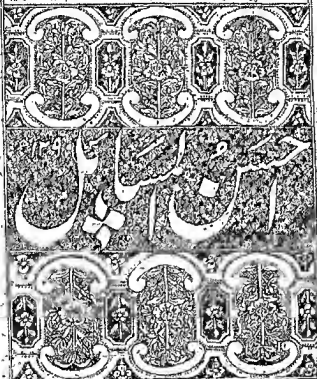 احسن المسایل